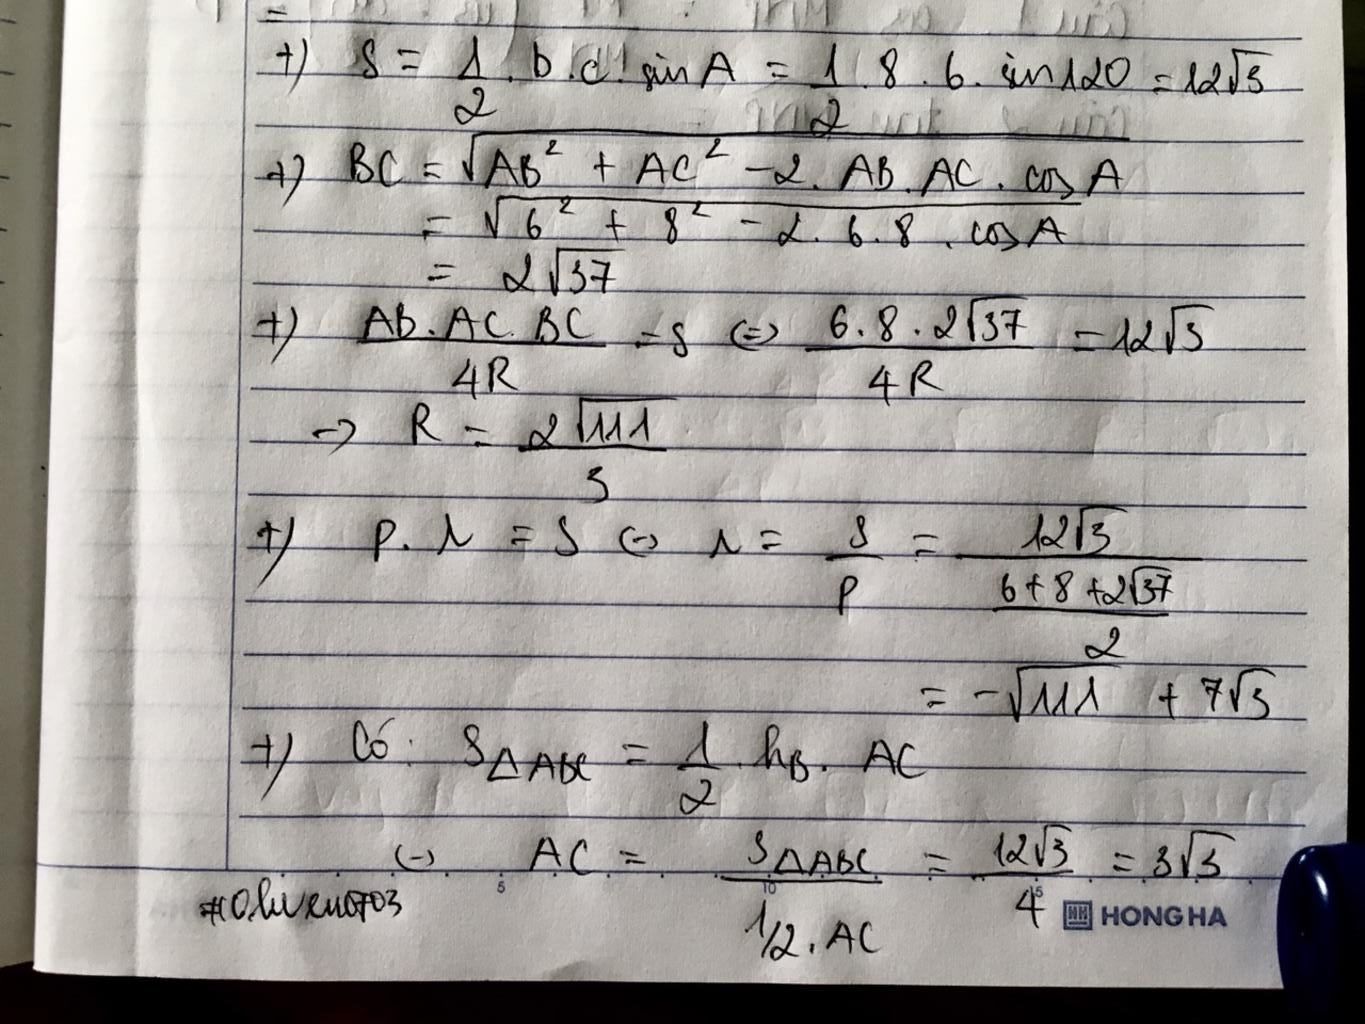 =
+) S = 1/2 . b . c . sin A = 1/2 . 8 . 6 . sin 120 = 12√3
+) BC = √(AB² + AC² - 2. AB. AC. cos A)
= √(6² + 8² - 2. 6. 8 . cos A)
= 2√37
+) AB. AC. BC / 4R = S (=) 6. 8. 2√37 / 4R = 12√3
-> R = 2√111 / 3
+) p. r = S (=) r = S/p = 12√3 / ((6 + 8 + 2√37) / 2)
= -√111 + 7√3
+) Có: S△ABC = 1/2 . hB. AC
(=) AC = S△ABC / (1/2. AC) = 12√3 / 4 = 3√3
5 10 15
HONG HA